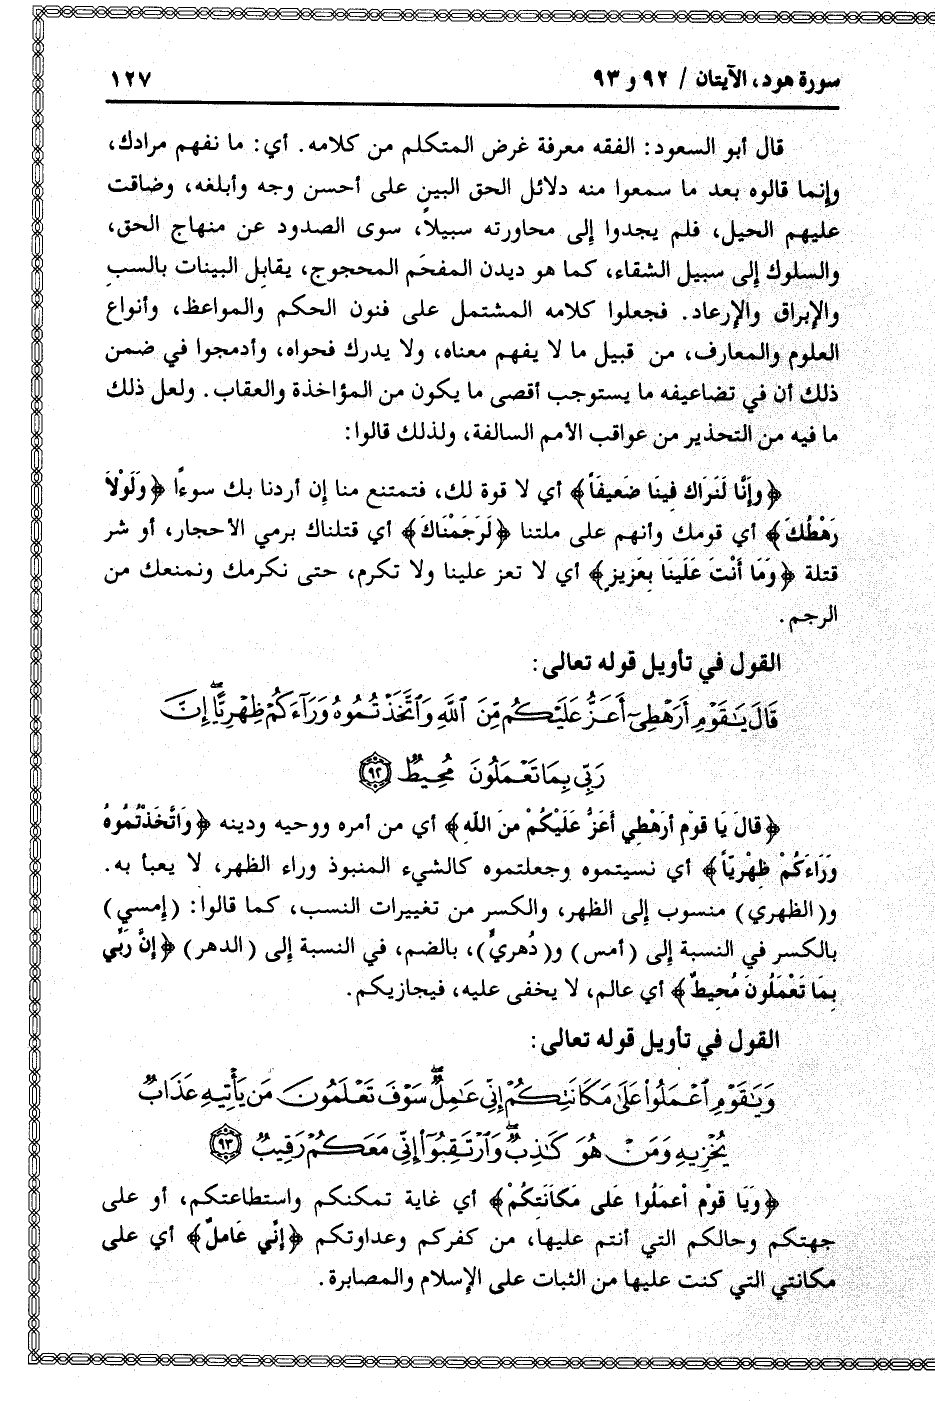 سورة هود، الآيتان / ٩٢ و ٩٣
١٢٧
قال أبو السعود: الفقه معرفة غرض المتكلم من كلامه. أي: ما نفهم مرادك،
وإنما قالوه بعد ما سمعوا منه دلائل الحق البين على أحسن وجه وأبلغه، وضاقت
عليهم الحيل، فلم يجدوا إلى محاورته سبيلاً، سوى الصدود عن منهاج الحق،
والسلوك إلى سبيل الشقاء، كما هو ديدن المفحَم المحجوج، يقابل البينات بالسب
والإبراق والإرعاد. فجعلوا كلامه المشتمل على فنون الحكم والمواعظ، وأنواع
العلوم والمعارف، من قبيل ما لا يفهم معناه، ولا يدرك فحواه، وأدمجوا في ضمن
ذلك أن في تضاعيفه ما يستوجب أقصى ما يكون من المؤاخذة والعقاب. ولعل ذلك
ما فيه من التحذير من عواقب الأمم السالفة، ولذلك قالوا:
﴿وإنَّا لَنَرَاك فِينَا ضَعيفَاً﴾ أي لا قوة لك، فتمتنع منا إن أردنا بك سوءاً ﴿وَلَوْلاَ
رَهْطُكَ﴾ أي قومك وأنهم على ملتنا ﴿لَرَجَمْنَاكَ﴾ أي قتلناك برمي الأحجار، أو شر
قتلة ﴿وَمَا أَنْتَ عَلَينَا بِعَزِيزٍ﴾ أي لا تعز علينا ولا تكرم، حتى نكرمك ونمنعك من
الرجم.
القول في تأويل قوله تعالى:
قَالَ يَٰقَوْمِ أَرَهْطِىٓ أَعَزُّ عَلَيْكُم مِّنَ ٱللَّهِ وَٱتَّخَذْتُمُوهُ وَرَآءَكُمْ ظِهْرِيًّا ۖ إِنَّ
رَبِّى بِمَا تَعْمَلُونَ مُحِيطٌ ٩٢
﴿قالَ يَا قوْمِ أرَهْطِي أعَزُّ عَلَيْكُمْ منَ اللَّهِ﴾ أي من أمره ووحيه ودينه ﴿وَاتَّخَذْتُمُوهُ
وَرَاءَكُمْ ظِهْريّاً﴾ أي نسيتموه وجعلتموه كالشيء المنبوذ وراء الظهر، لا يعبأ به.
و(الظهري) منسوب إلى الظهر، والكسر من تغييرات النسب، كما قالوا: (إمسي)
بالكسر في النسبة إلى (أمس) و(دُهريّ)، بالضم، في النسبة إلى (الدهر) ﴿إنَّ رَبِّي
بِمَا تَعْمَلُونَ مُحيطٌ﴾ أي عالم، لا يخفى عليه، فيجازيكم.
القول في تأويل قوله تعالى:
وَيَٰقَوْمِ ٱعْمَلُوا۟ عَلَىٰ مَكَانَتِكُمْ إِنِّى عَٰمِلٌ ۖ سَوْفَ تَعْلَمُونَ مَن يَأْتِيهِ عَذَابٌ
يُخْزِيهِ وَمَنْ هُوَ كَٰذِبٌ ۖ وَٱرْتَقِبُوٓا۟ إِنِّى مَعَكُمْ رَقِيبٌ ٩٣
﴿وَيَا قوْم اعمَلُوا عَلى مَكانَتِكُمْ﴾ أي غاية تمكنكم واستطاعتكم، أو على
جهتكم وحالكم التي أنتم عليها، من كفركم وعداوتكم ﴿إنِّي عَاملٌ﴾ أي على
مكانتي التي كنت عليها من الثبات على الإسلام والمصابرة.